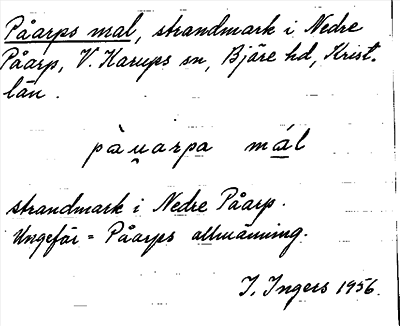 Påarps mal, strandmark i Nedre
Påarp, V. Karups sn, Bjäre hd, Krist.
län.
pàu̯arpa mál
strandmark i Nedre Påarp.
Ungefär = Påarps allmänning.
I. Ingers 1956.